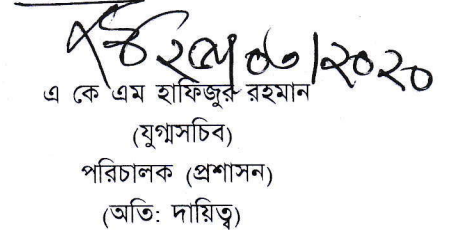 এ কে এম হাফিজুর রহমান
(যুগ্মসচিব)
পরিচালক (প্রশাসন)
(অতি: দায়িত্ব)